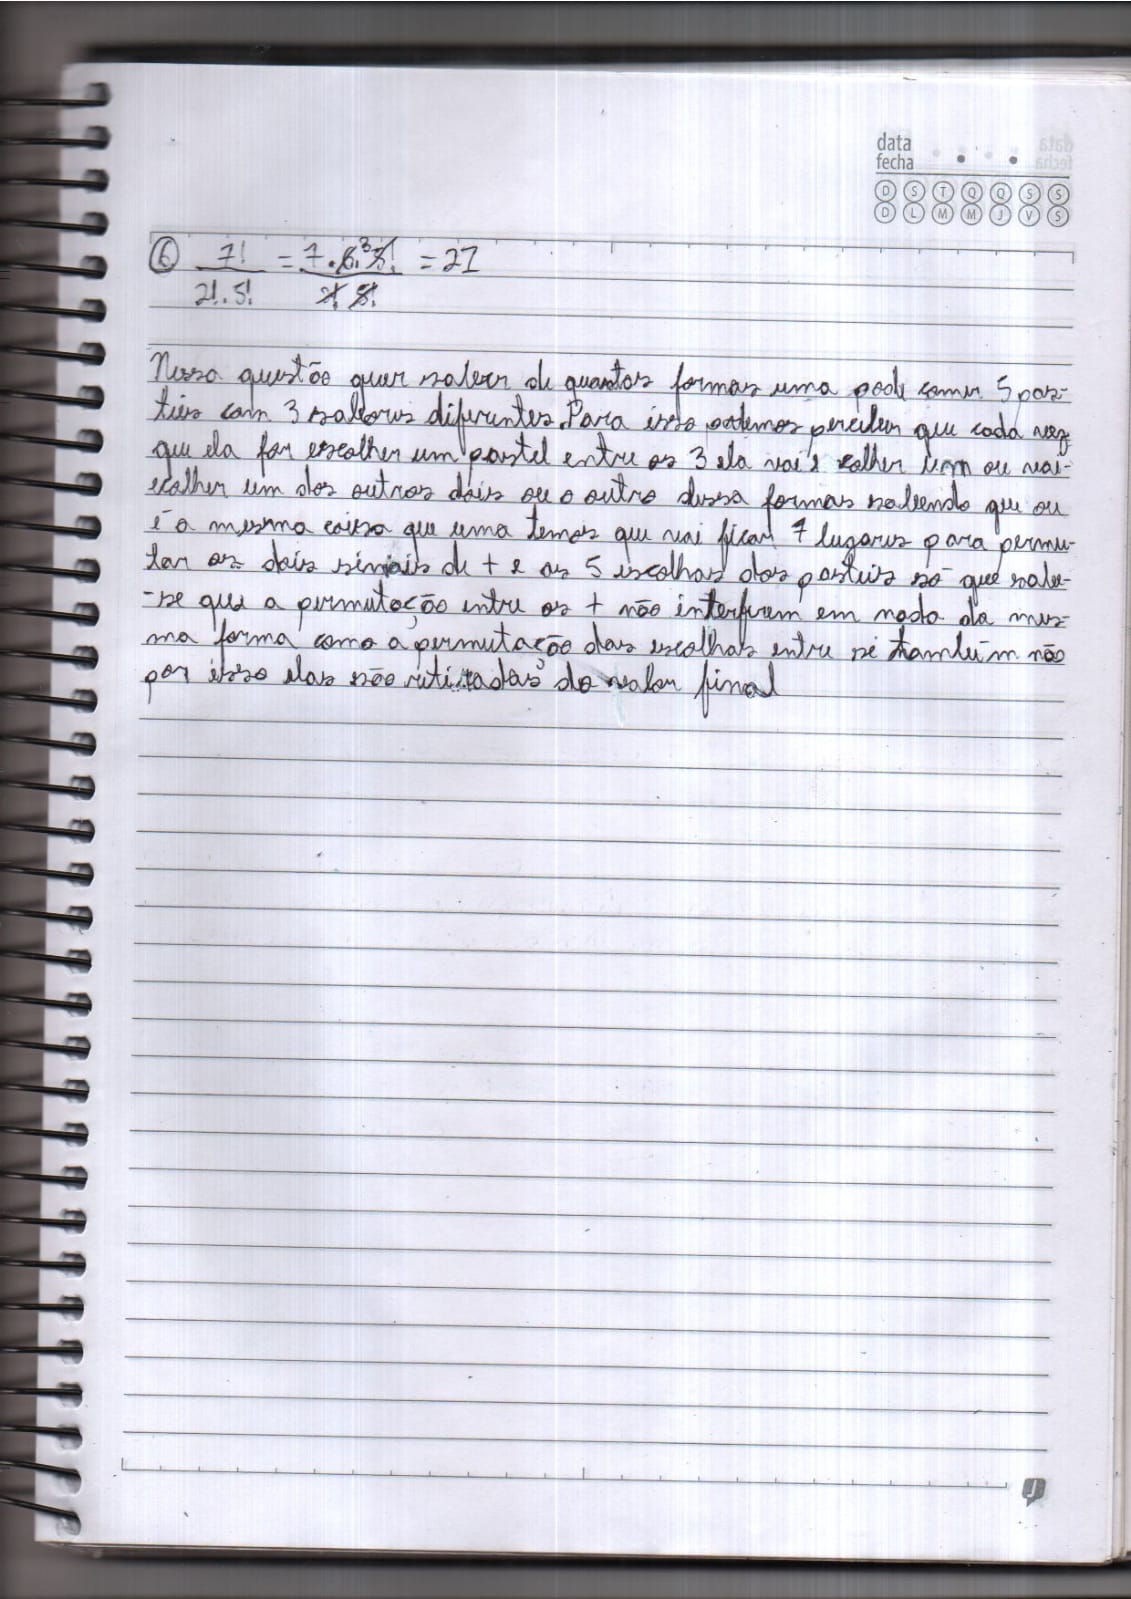 data
fecha
D S T Q Q S S
D L M M J V S
6 7! = 7.6.³5! = 21
2!.5! 2! 5!
Nessa questão quer saber de quantas formas uma pode comer 5 pas-
téis com 3 sabores diferentes. Para isso podemos perceber que cada vez
que ela for escolher um pastel entre os 3 ela vai escolher um ou vai
escolher um dos outros dois ou o outro dessa formas sabendo que ou
é a mesma coisa que uma temos que vai ficar 7 lugares para permu-
tar os dois sinais de + e as 5 escolhas dos pastéis só que sabe-
-se que a permutação entre os + não interferem em nada da mes-
ma forma como a permutação das escolhas entre si também não
por isso elas são retiradas do valor final